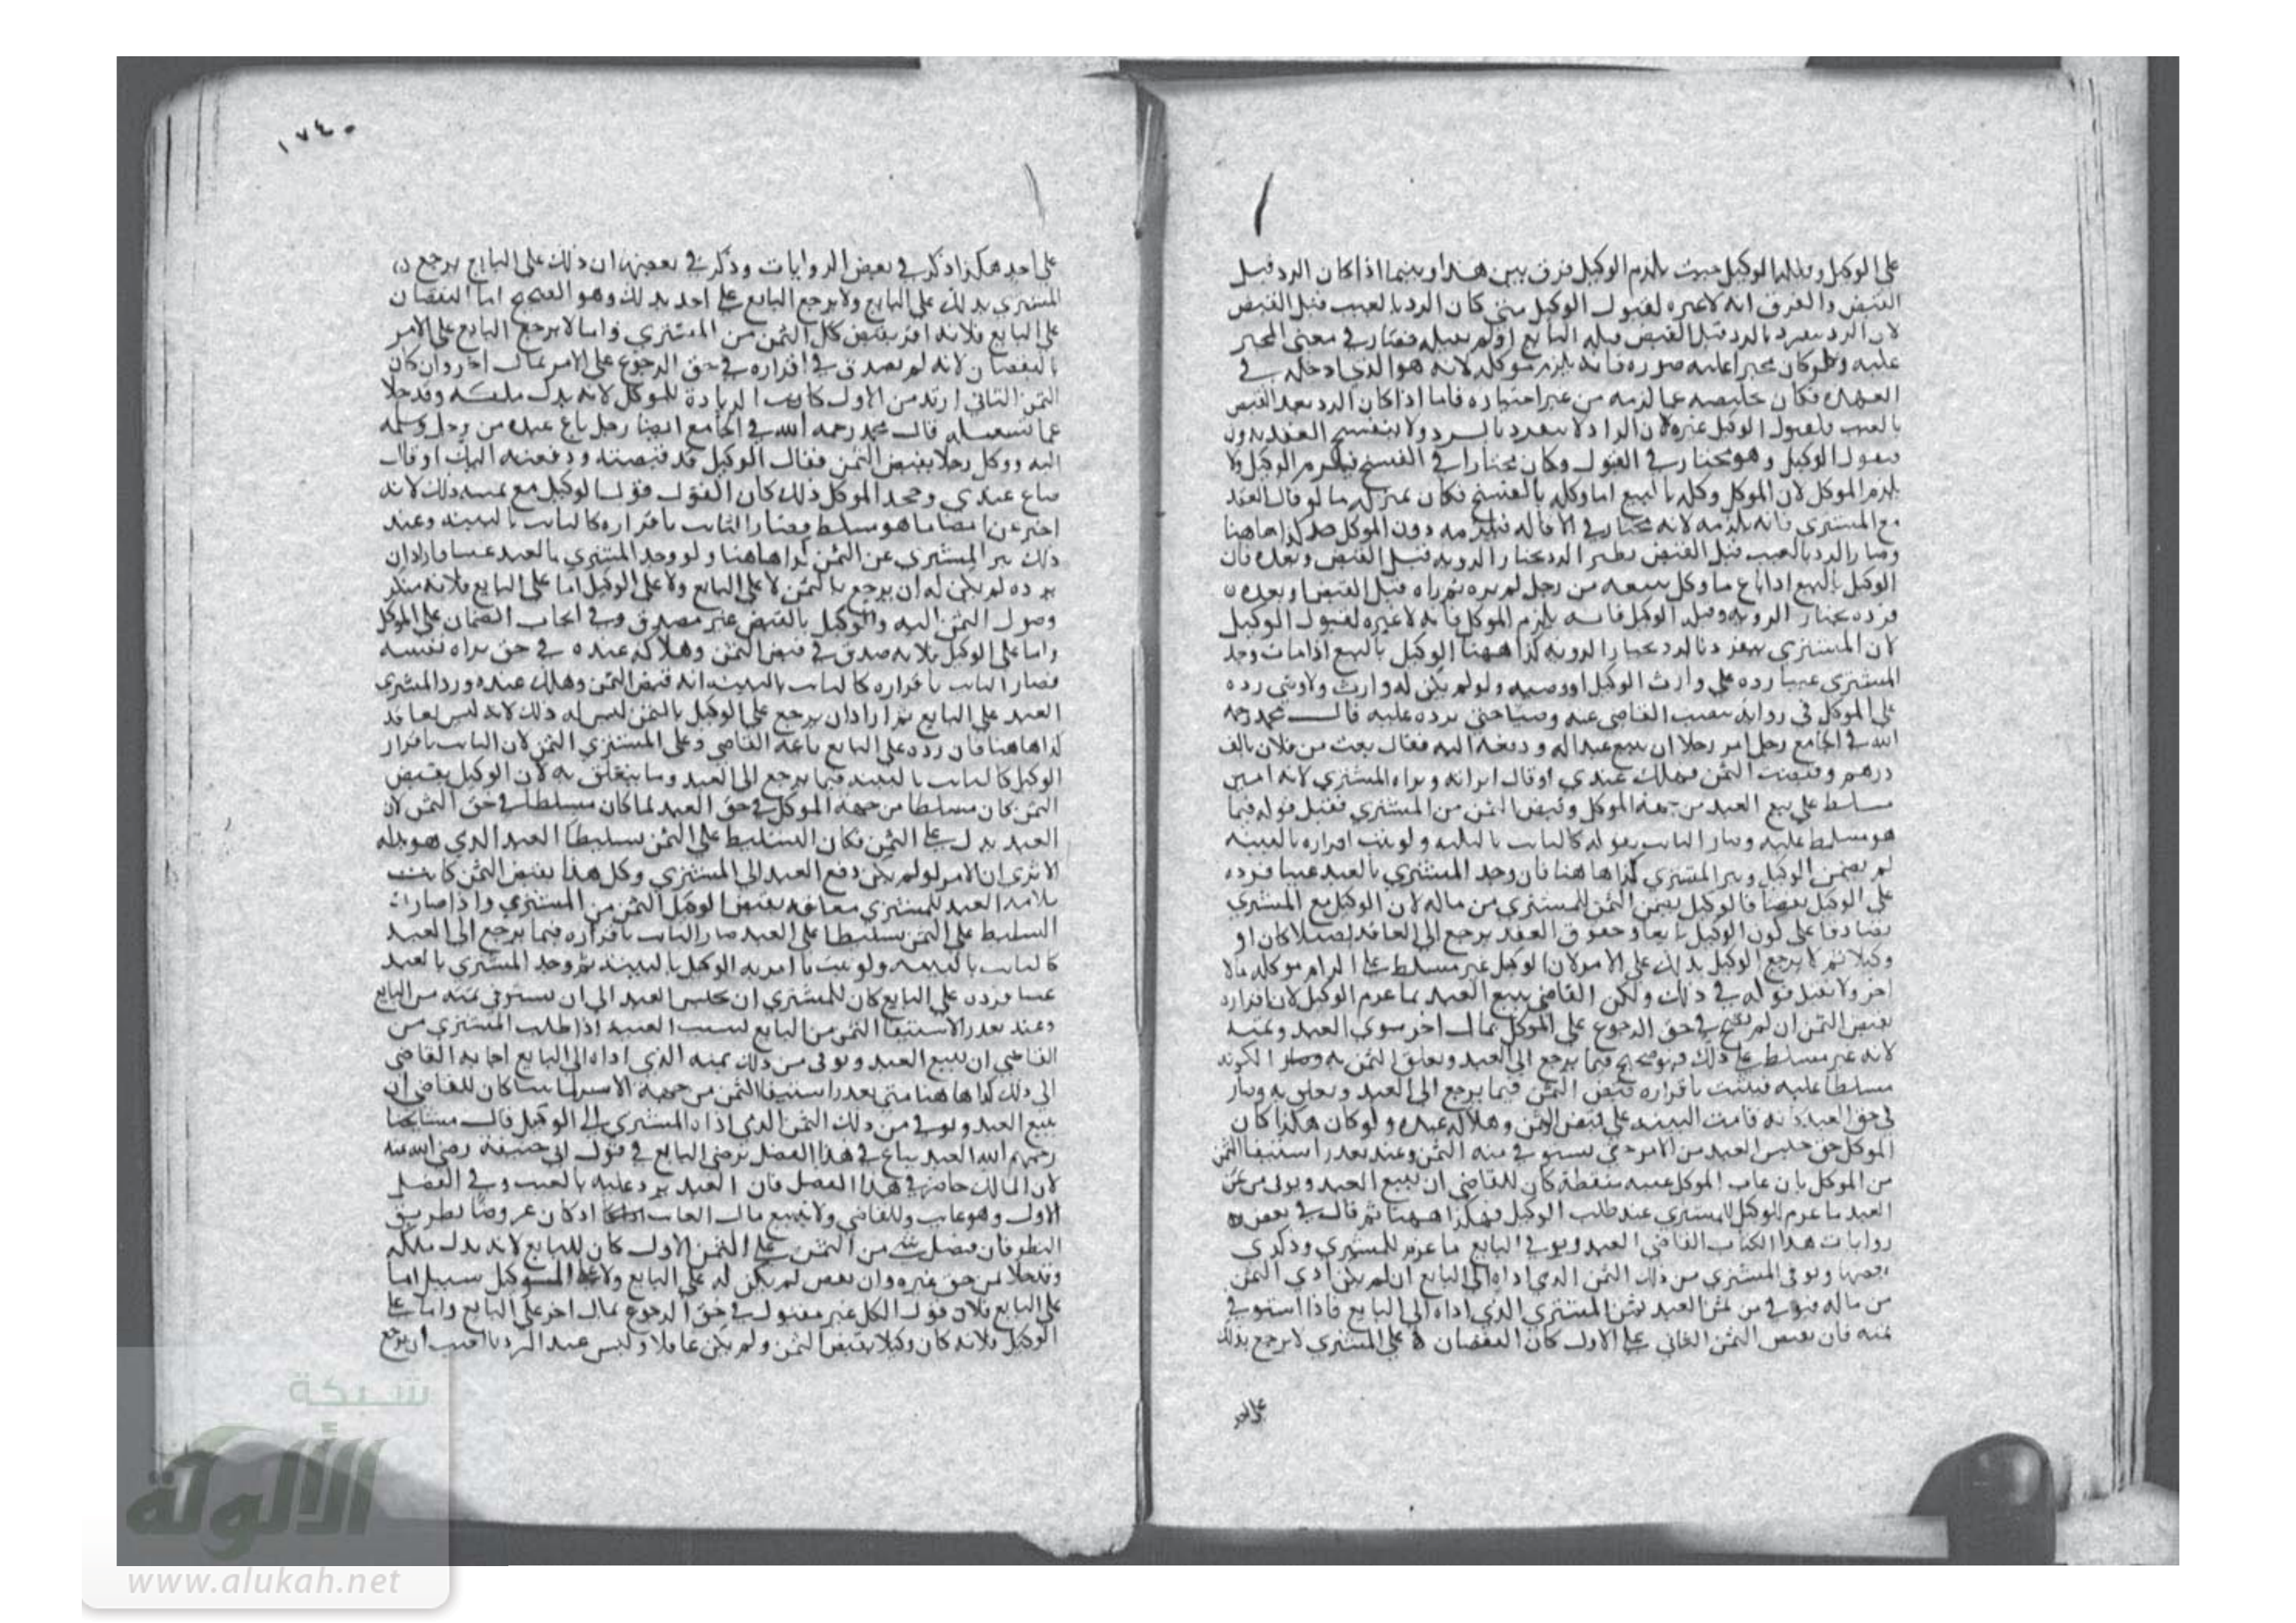 على الوكيل وقبلها الوكيل حيث يلزم الوكيل فرق بين هذا وبينما اذا كان الرد قبل
القبض والفرق انه لاعبره لقبول الوكيل متى كان الرد بالعيب قبل القبض
لان الرد ينفرد بالرد قبل القبض قبله البايع اولم يقبله فصار في معنى المجبر
عليه ولو كان مجبرا عليه صوره فانه يلزم موكله لانه هو الذي ادخله في
العهده فكان تخليصه عما لزمه من غير اختياره فاما اذا كان الرد بعد القبض
بالعيب فلقبول الوكيل عبره لان الراد لا ينفرد بالرد ولا ينفسخ العقد بدون
قبول الوكيل وهو مختار في القبول وكان مختارا في الفسخ فيلزم الوكيل ولا
يلزم الموكل لان الموكل وكله بالبيع اما وكله بالفسخ فكان بمنزلة ما لو قال العقد
مع المشتري فانه يلزمه لانه مختار في الاقاله فيلزمه دون الموكل كذا هاهنا
وصار الرد بالعيب قبل القبض نظير الرد بخيار الرويه قبل القبض وبعده فان
الوكيل بالبيع اذا باع ما وكل ببيعه من رجل لم يره ثم راه قبل القبض او بعده
فرده بخيار الرويه وقبله الوكيل فانه يلزم الموكل فانه لاعبره لقبول الوكيل
لان المشتري ينفرد بالرد بخيار الرويه كذا ههنا الوكيل بالبيع اذا مات وجد
المشتري عيبا رده على وارث الوكيل او وصيه ولو لم يكن له وارث ولا وصي رده
على الموكل في روايه ينصب القاضي عنه وصيا حتى يرده عليه قال محمد رحمه
الله في الجامع رجل امر رجلا ان يبيع عبدا له ودفعه اليه فقال بعت من فلان بالف
درهم وقبضت الثمن فهلك عندي او قال ابراته وبراه المشتري لانه امين
مسلط على بيع العبد من جهة الموكل وقبض الثمن من المشتري فقبل قوله فيما
هو مسلط عليه وصار الثابت بقوله كالثابت بالبينه ولو ثبت اقراره بالبينه
لم يضمن الوكيل وبرا المشتري كذا هاهنا فان وجد المشتري بالعبد عيبا فرده
على الوكيل بقضا فالوكيل يضمن الثمن للمشتري من ماله لان الوكيل مع المشتري
تصادقا على كون الوكيل بايعا وحقوق العقد يرجع الى العاقد اصيلا كان او
وكيلا ثم لا يرجع الوكيل بذلك على الامر لان الوكيل غير مسلط على الزام موكله مالا
اخر ولا يقبل قوله في ذلك ولكن القاضي يبيع العبد بما غرم الوكيل لان اقراره
بقبض الثمن ان لم يصح في حق الرجوع على الموكل بمال اخر سوى العبد وثمنه
لانه غير مسلط على ذلك فهو صحيح فيما يرجع الى العبد وتعلق الثمن به لكونه
مسلطا عليه فيثبت باقراره قبض الثمن فيما يرجع الى العبد وتعلق به وصار
في حق العبد كانه قامت البينه على قبض الثمن وهلاكه عنده ولو كان هكذا كان
الموكل حق حبس العبد من الامر حتى يستوفي منه الثمن وعند تعذر استيفا الثمن
من الموكل بان غاب الموكل غيبه منقطعة كان للقاضي ان يبيع العبد ويوفي من ثمن
العبد ما غرم الوكيل للمشتري عند طلب الوكيل فهكذا ههنا ثم قال في بعض
روايات هذا الكتاب القاضي العبد ويوفي البايع ما غرم للمشتري وذكر في
بعضها ويوفي المشتري من ذلك الثمن الذي اداه الى البايع ان لم يكن ادي الثمن
من ماله فيوفي من ثمن العبد ثمن المشتري الذي اداه الى البايع فاذا استوفى
ثمنه فان نقص الثمن الثاني على الاول كان النقصان على المشتري لا يرجع بذلك
على احد
١٧٤٠
على احد هكذا ذكر في بعض الروايات وذكر في بعضها ان ذلك على البايع يرجع
المشتري بذلك على البايع ولا يرجع البايع على احد بذلك وهو الصحيح اما النقصان
على البايع فلانه اقر بقبض كل الثمن من المشتري واما لا يرجع البايع على الامر
بالنقصان لانه لم يصدق في اقراره في حق الرجوع على الامر بمال اخر وان كان
الثمن الثاني ازيد من الاول كانت الزيادة للموكل لانه بدل ملكه وقد خلا
عما تسعله قال محمد رحمه الله في الجامع ايضا رجل باع عبده من رجل وسلمه
اليه ووكل رجلا بقبض الثمن فقال الوكيل قد قبضته ودفعته اليك او قال
ضاع عندي وجحد الموكل ذلك كان القول قول الوكيل مع يمينه وذلك لانه
اخبر عن امضا ما هو مسلط وصار الثابت باقراره كالثابت بالبينه وعند
ذلك برا المشتري عن الثمن كذا هاهنا ولو وجد المشتري بالعبد عيبا فاراد ان
يرده لم يكن له ان يرجع بالثمن لا على البايع ولا على الوكيل اما على البايع فلانه منكر
وصول الثمن اليه والوكيل بالقبض غير مصدق في ايجاب الضمان على الموكل
واما على الوكيل فلانه صدق في قبض الثمن وهلاكه عنده في حق براه نفسه
فصار الثابت باقراره كالثابت بالبينه انه قبض الثمن وهلك عنده ورد المشتري
العبد على البايع ثم اراد ان يرجع على الوكيل بالثمن ليس له ذلك لانه ليس بعاقد
كذا هاهنا فان رده على البايع باعه القاضي وعلى المشتري الثمن لان الثابت باقرار
الوكيل كالثابت بالبينه فيما يرجع الى العبد وما يتعلق به لان الوكيل بقبض
الثمن كان مسلطا من جهة الموكل في حق العبد لما كان مسلطا في حق الثمن لان
العبد بدل على الثمن فكان التسليط على الثمن تسليطا العبد الذي هو بدله
الا ترى ان الامر لو لم يكن دفع العبد الى المشتري وكل هذا بقبض الثمن كانت
سلامه العبد للمشتري معلقه بقبض الوكيل الثمن من المشتري واذا صارت
التسليط على الثمن تسليطا على العبد صار الثابت باقراره فيما يرجع الى العبد
كالثابت بالبينه ولو ثبت ما امر به الوكيل بالبينه ثم وجد المشتري بالعبد
عيبا فرده على البايع كان للمشتري ان يحبس العبد الى ان يستوفي ثمنه من البايع
وعند تعذر الاستيفا الثمن من البايع لسبب الغيبه اذا طلب المشتري من
القاضي ان يبيع العبد ويوفي من ذلك ثمنه الذي اداه الى البايع اجابه القاضي
الى ذلك كذا هاهنا متى تعذر استيفا الثمن من جهة الامر كان للقاضي ان
يبيع العبد ويوفي من ذلك الثمن الذي اداه المشتري الى الوكيل قال مشايخنا
رحمهم الله العبد يباع في هذا الفصل برضى البايع في قول ابي حنيفة رضي الله عنه
لان المالك حاضر في هذا الفصل فان العبد يرد عليه بالعيب وفي الفصل
الاول وهو غايب وللقاضي ولاية بيع مال الغايب اذ كان عروضا بطريق
النظر فان فضل شي من الثمن على الثمن الاول كان للبايع لانه بدل ملكه
وقد خلا من حق غيره وان نقص لم يكن له على البايع ولا على الوكيل سبيل اما
على البايع فلان قول الكل غير مقبول في حق الرجوع بمال اخر على البايع واما على
الوكيل فلانه كان وكيلا بقبض الثمن ولم يكن عاقلا وليس عند الرد بالعيب ان يرجع
شبكة
الألوكة
www.alukah.net